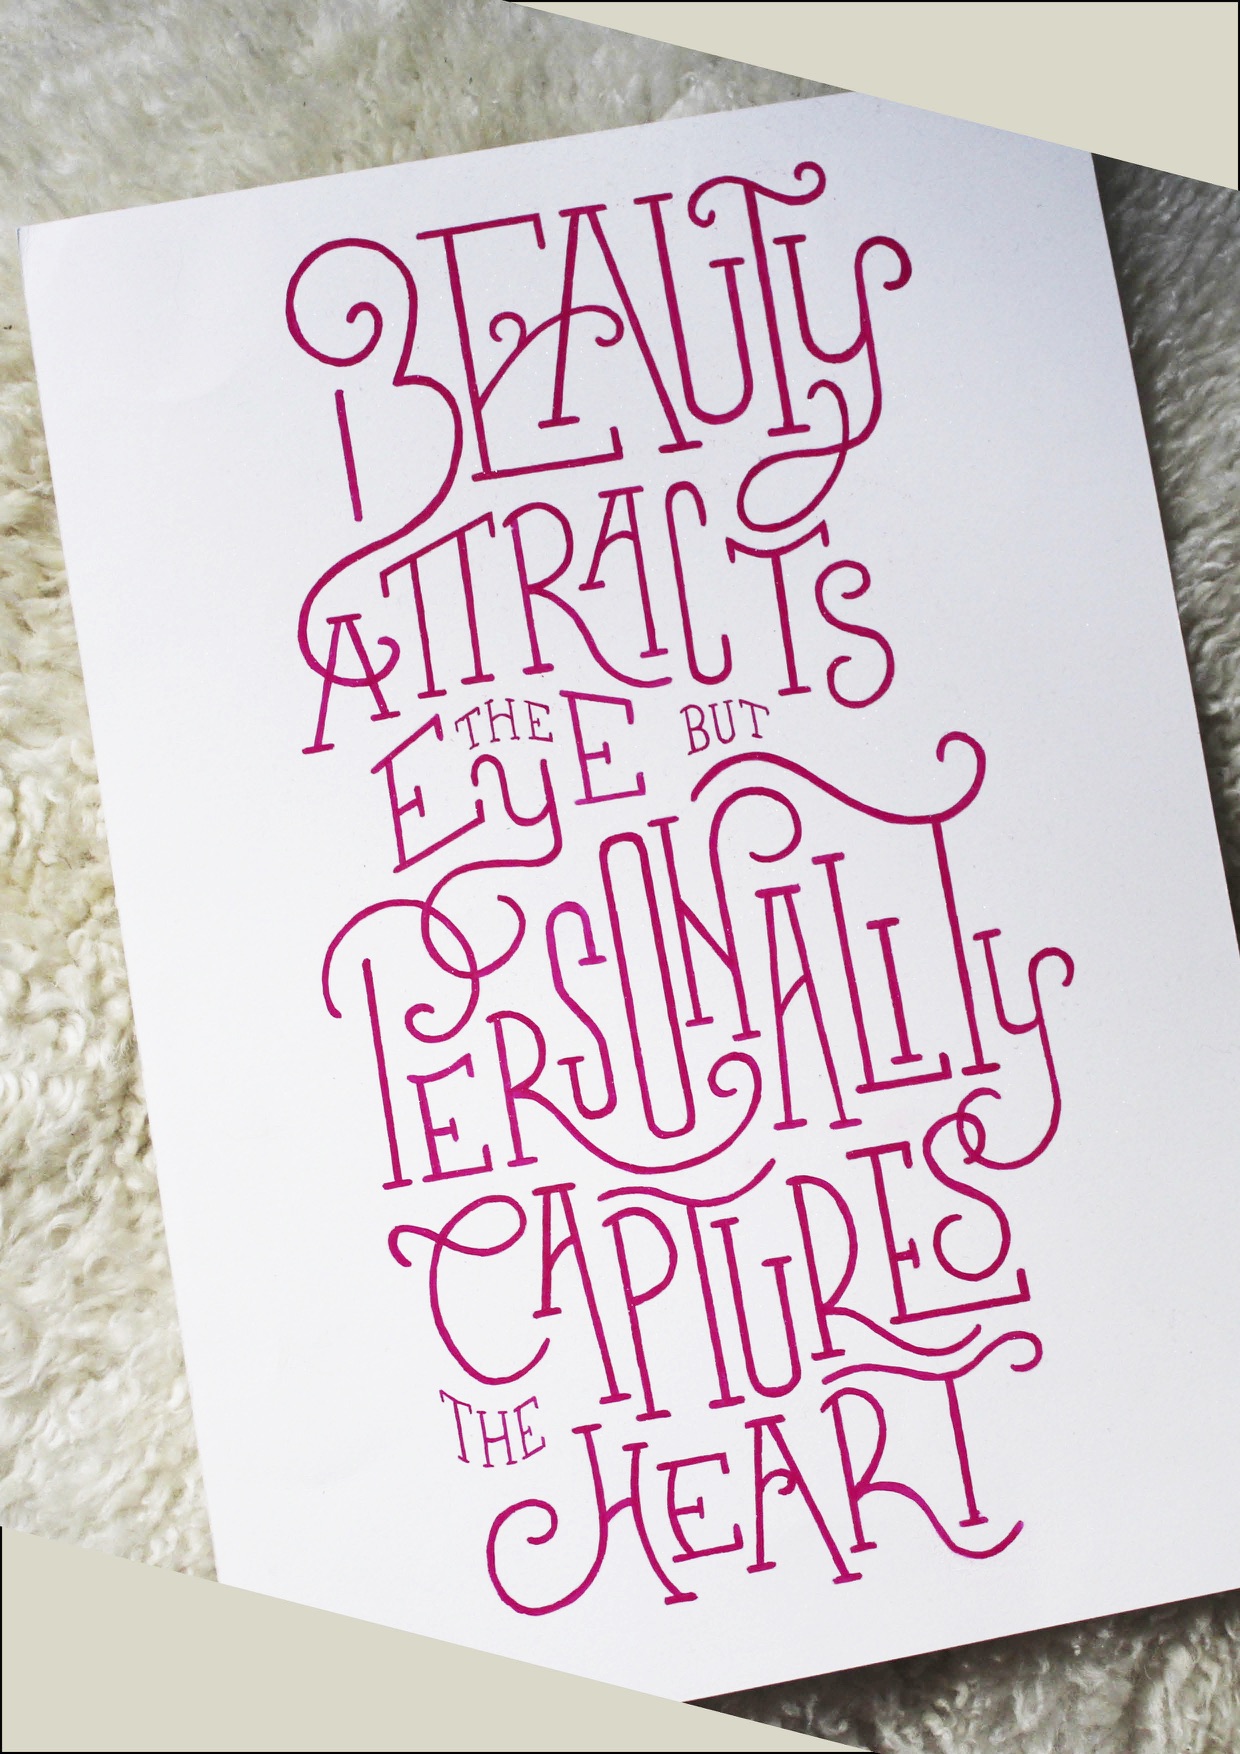 BEAUTY
ATTRACTS
THE EYE BUT
PERSONALITY
CAPTURES
THE
HEART